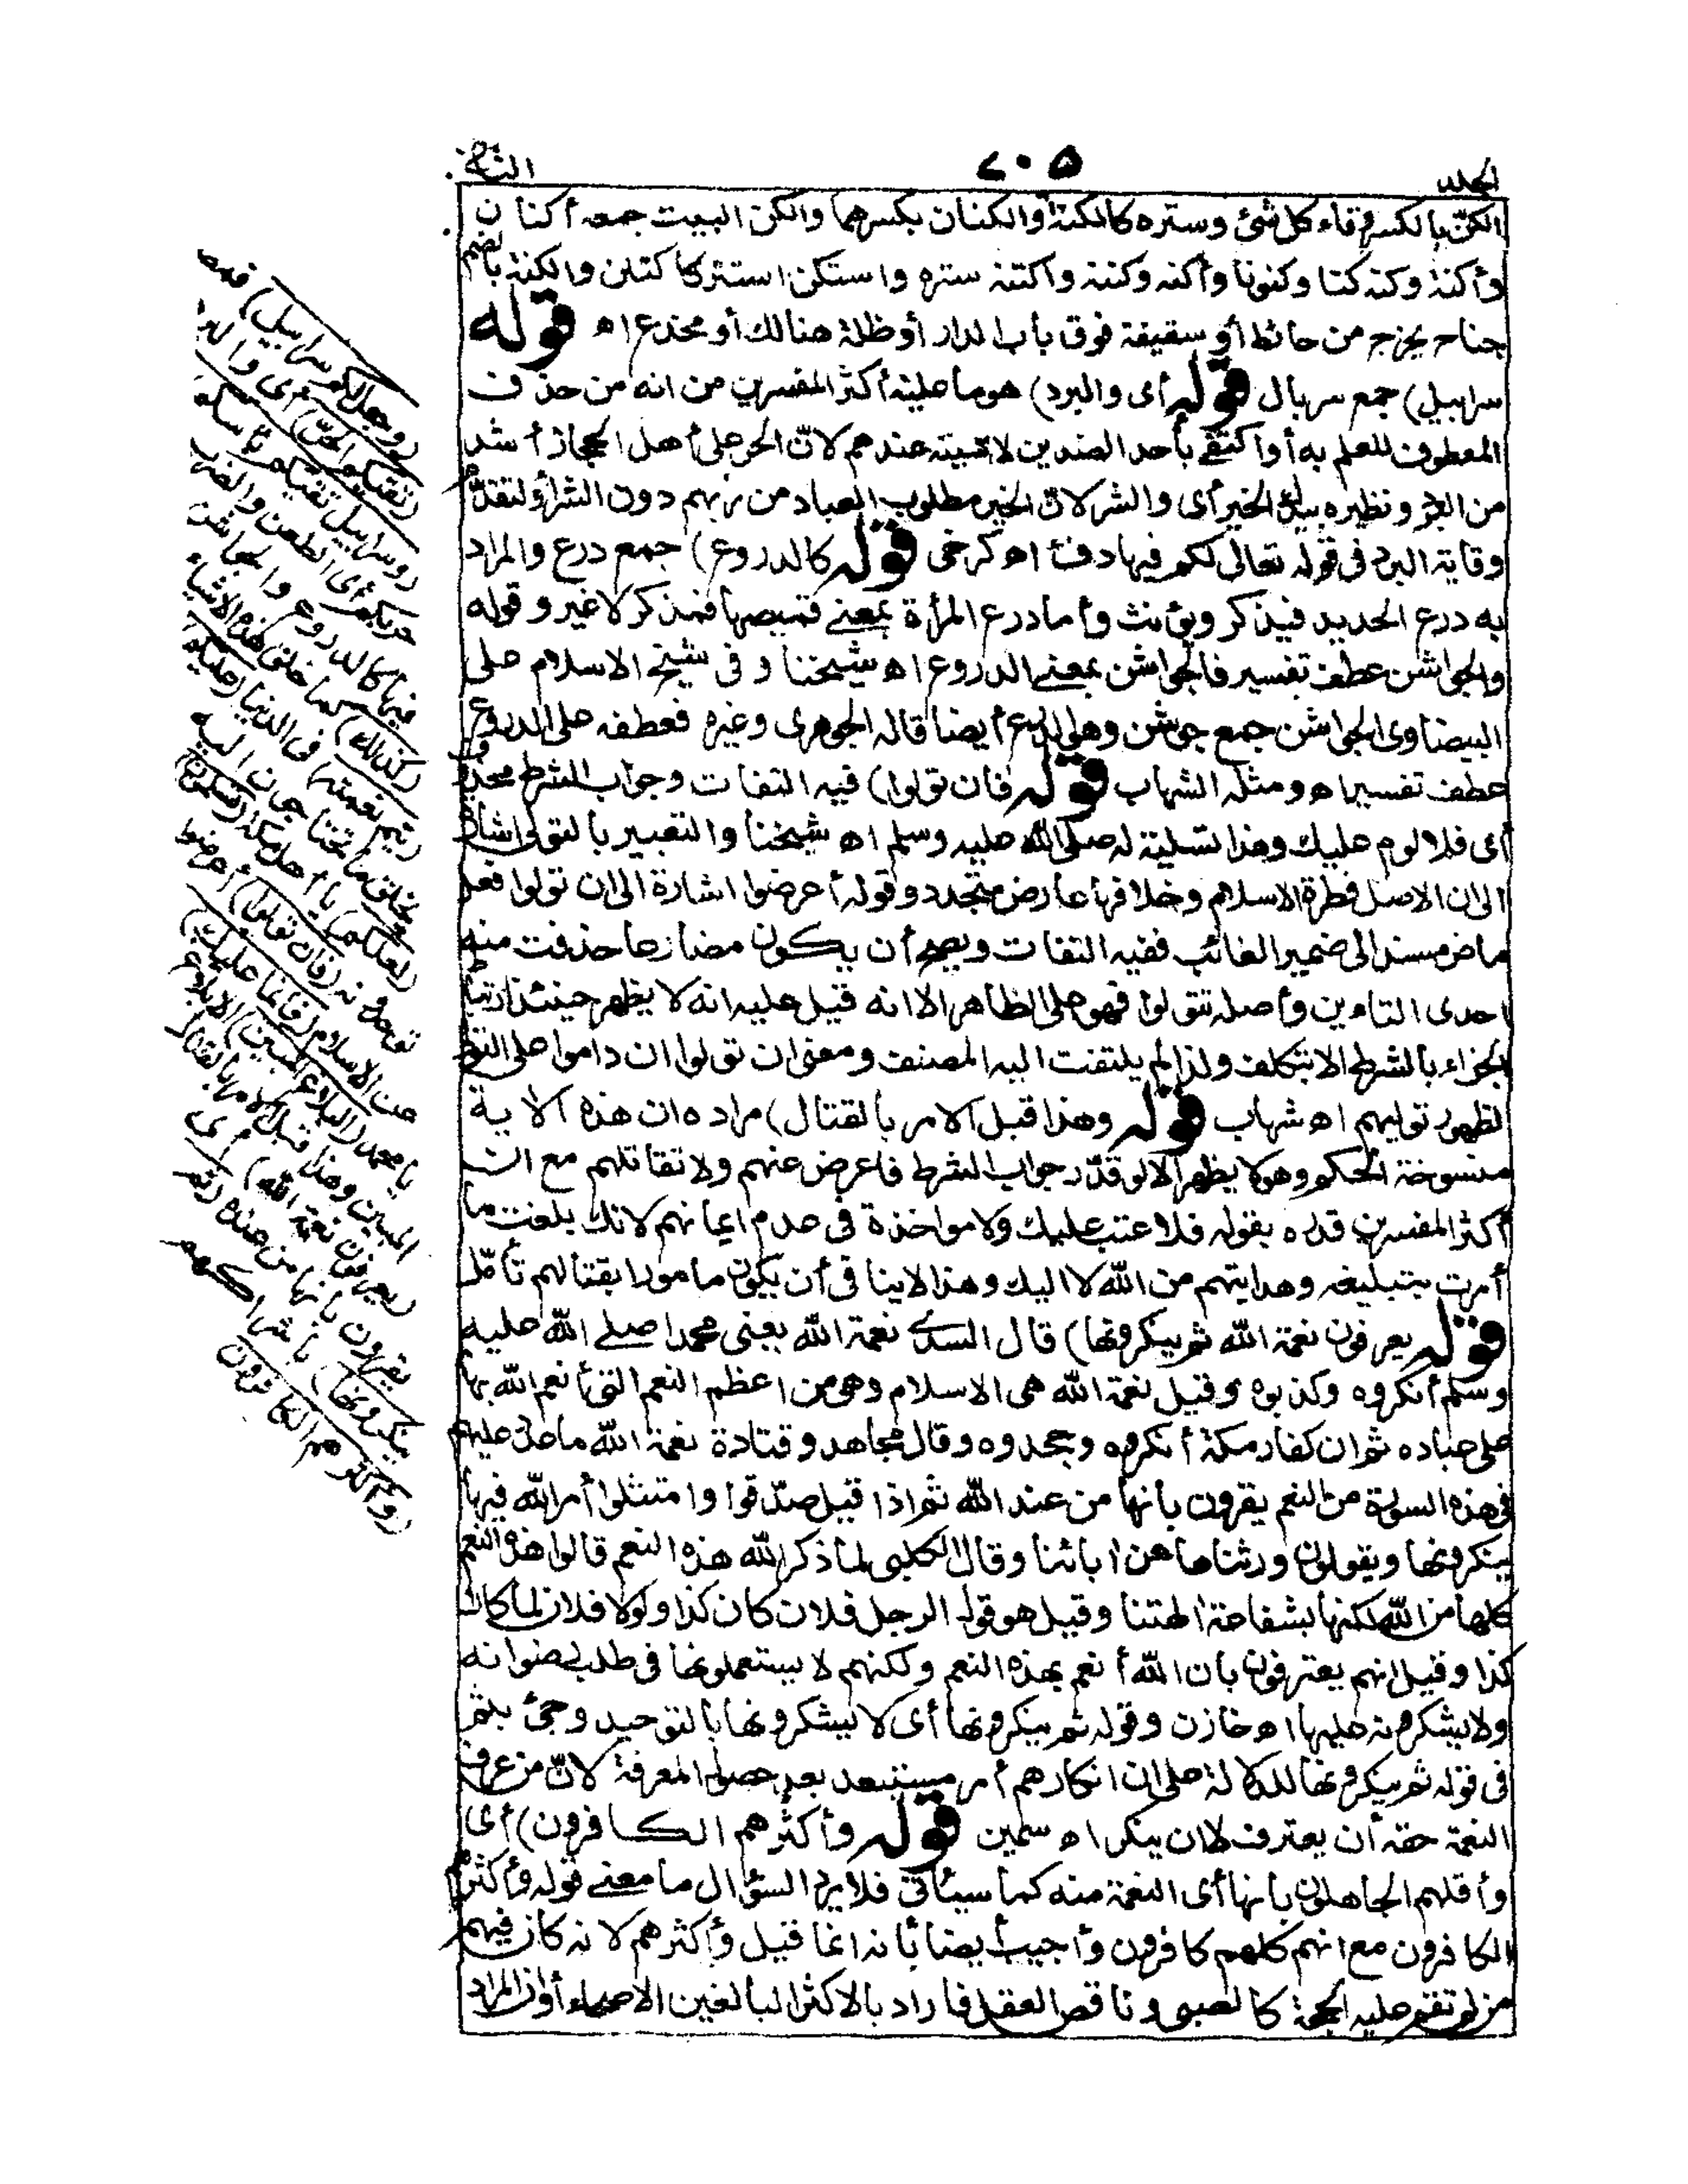 الجلد ٧٠٥ الثانى
الكنّ بالكسر وقاء كل شئ وستره كالكنة والكنان بكسرهما والكن البيت جمعه أكنان
وأكنة وكنه كنا وكنونا وأكنه وكننه واكتنه ستره واستكن استتر كاكتن والكنة بالضم
جناح يخرج من حائط أو سقيفة فوق باب الدار أو ظلة هنالك أو مخدع اه قوله
سرابيل) جمع سربال قوله أى والبرد) هو ما عليه أكثر المفسرين من انه من حذف
المعطوف للعلم به أو اكتفى بأحد الضدين لاهميته عندهم لانّ الحر على أهل الحجاز أشد
من البرد ونظيره بيدك الخير أى والشر لانّ الخير مطلوب العباد من ربهم دون الشر أو لتقدم
وقاية البرد فى قوله تعالى لكم فيها دفء اه كرخى قوله كالدروع) جمع درع والمراد
به درع الحديد فيذكر ويؤنث وأما درع المرأة بمعنى قميصها فمذكر لا غير وقوله
والجواشن عطف تفسير فالجواشن بمعنى الدروع اه شيخنا وفى شيخ الاسلام على
البيضاوى الجواشن جمع جوشن وهى الدرع أيضا قاله الجوهرى وغيره فعطفه على الدروع
عطف تفسير اه ومثله الشهاب قوله فان تولوا) فيه التفات وجواب الشرط محذوف
أى فلا لوم عليك وهذا تسلية له صلى الله عليه وسلم اه شيخنا والتعبير بالتولى اشارة
الى ان الاصل فطرة الاسلام وخلافها عارض متجدد وقوله أعرضوا اشارة الى ان تولوا فعل
ماض مسند الى ضمير الغائب ففيه التفات ويصح أن يكون مضارعا حذفت منه
احدى التاءين وأصله تتولوا فهو على الظاهر الا انه قيل عليه انه لا يظهر حينئذ ارتباط
الجزاء بالشرط الا بتكلف ولذا لم يلتفت اليه المصنف ومعنى ان تولوا ان داموا على التولى
لظهور توليهم اه شهاب قوله وهذا قبل الامر بالقتال) مراده ان هذه الاية
منسوخة الحكم وهو لا يظهر الا لو قدّر جواب الشرط فاعرض عنهم ولا تقاتلهم مع ان
أكثر المفسرين قدره بقوله فلا عتب عليك ولا مواخذة فى عدم ايمانهم لانك بلغت ما
أمرت بتبليغه وهدايتهم من الله لا اليك وهذا لا ينافى أن يكون مامورا بقتالهم تأمّل
قوله يعرفون نعمة الله ثم ينكرونها) قال السدى نعمة الله يعنى محمدا صلى الله عليه
وسلم أنكروه وكذبوه وقيل نعمة الله هى الاسلام وهو من اعظم النعم التى أنعم الله بها
على عباده ثم ان كفار مكة أنكروه وجحدوه وقال مجاهد وقتادة نعمة الله ما عدّ عليهم
فى هذه السورة من النعم يقرون بأنها من عند الله ثم اذا قيل صدّقوا وامتثلوا أمر الله فيها
ينكرونها ويقولون ورثناها من ابائنا وقال الكلبى لما ذكر الله هذه النعم قالوا هذه النعم
كلها من الله لكنها بشفاعة الهتنا وقيل هو قول الرجل فلان كان كذا ولولا فلان لما كان
كذا وقيل انهم يعترفون بان الله أنعم بهذه النعم ولكنهم لا يستعملونها فى طلب رضوانه
ولا يشكرونه عليها اه خازن وقوله ثم ينكرونها أى لا يشكرونها بالتوحيد وجئ بثم
فى قوله ثم ينكرونها للدلالة على ان انكارهم أمر مستبعد بعد حصول المعرفة لانّ من عرف
النعمة حقه أن يعترف لا ان ينكر اه سمين قوله وأكثرهم الكافرون) أى
وأقلهم الجاهلون بأنها أى النعمة منه كما سيأتى فلا يرد السؤال ما معنى قوله وأكثرهم
الكافرون مع انهم كلهم كافرون وأجيب أيضا بأنه انما قيل وأكثرهم لانه كان فيهم
من لم تقم عليه الحجة كالصبى وناقص العقل فاراد بالاكثر البالغين الاصحاء أو ان المراد
(وجعل لكم سرابيل) قمصا
(تقيكم الحرّ) أى والبرد
(وسرابيل تقيكم بأسكم)
حربكم أى الطعن والضرب
فيها كالدروع والجواشن
(كذلك) كما خلق هذه الاشياء
(يتم نعمته) فى الدنيا (عليكم)
بخلق ما تحتاجون اليه
(لعلكم) يا أهل مكة (تسلمون)
توحدونه (فان تولوا) أعرضوا
عن الاسلام (فانما عليك)
يا محمد (البلاغ المبين) الابلاغ
المبين وهذا قبل الامر بالقتال
(يعرفون نعمة الله) أى
يقرون بأنها من عنده (ثم
ينكرونها) باشراكهم
(وأكثرهم الكافرون